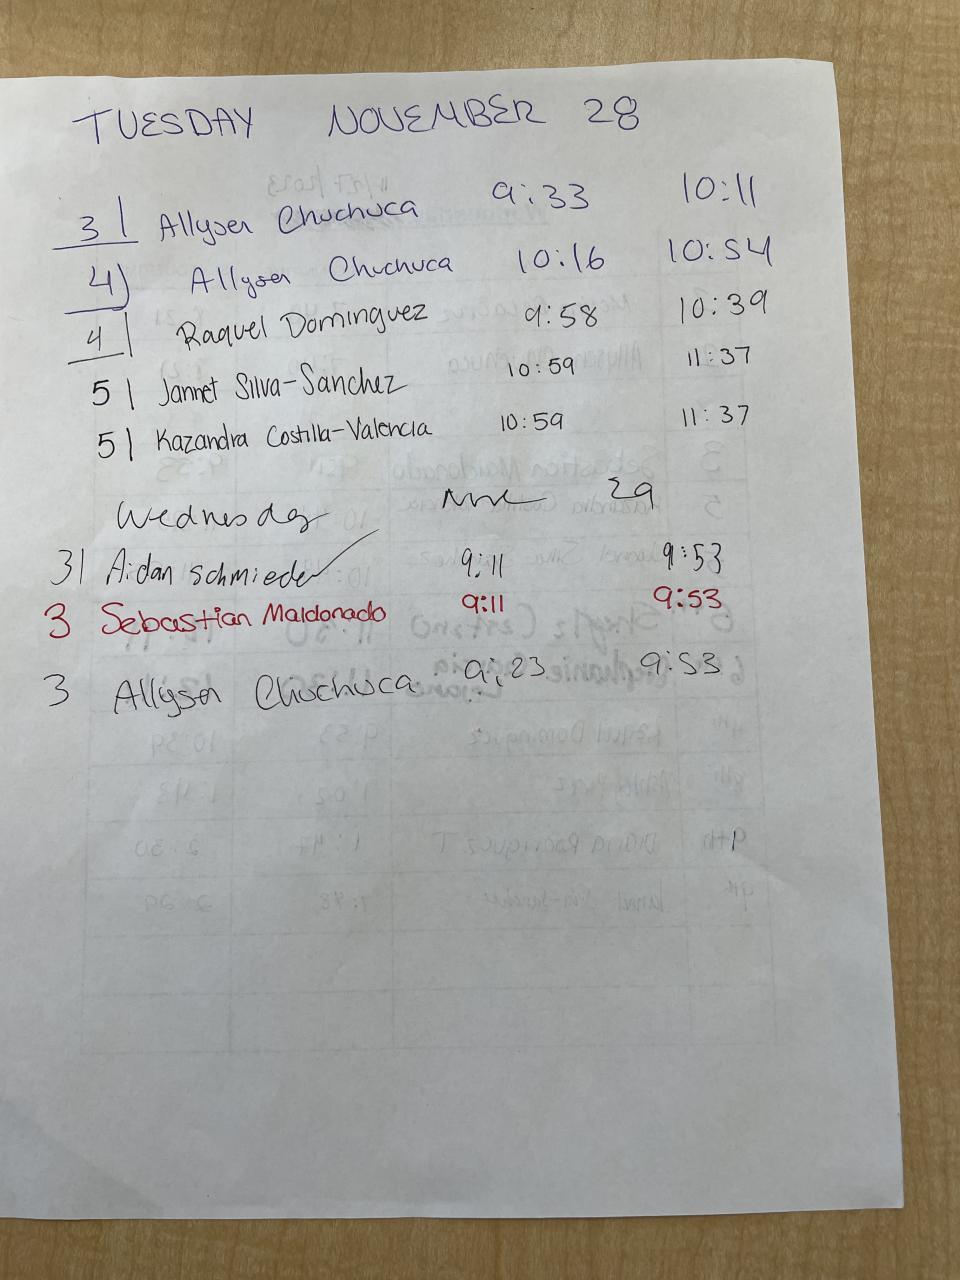 TUESDAY NOVEMBER 28
3 | Allyson Chuchuca 9:33 10:11
4) Allyson Chuchuca 10:16 10:54
4 | Raquel Dominguez 9:58 10:39
5 | Jannet Silva-Sanchez 10:59 11:37
5 | Kazandra Costilla-Valencia 10:59 11:37
Wednesday Nov 29
3 | Aidan Schmieder 9:11 9:53
3 Sebastian Maldonado 9:11 9:53
3 Allyson Chuchuca 9:23 9:53